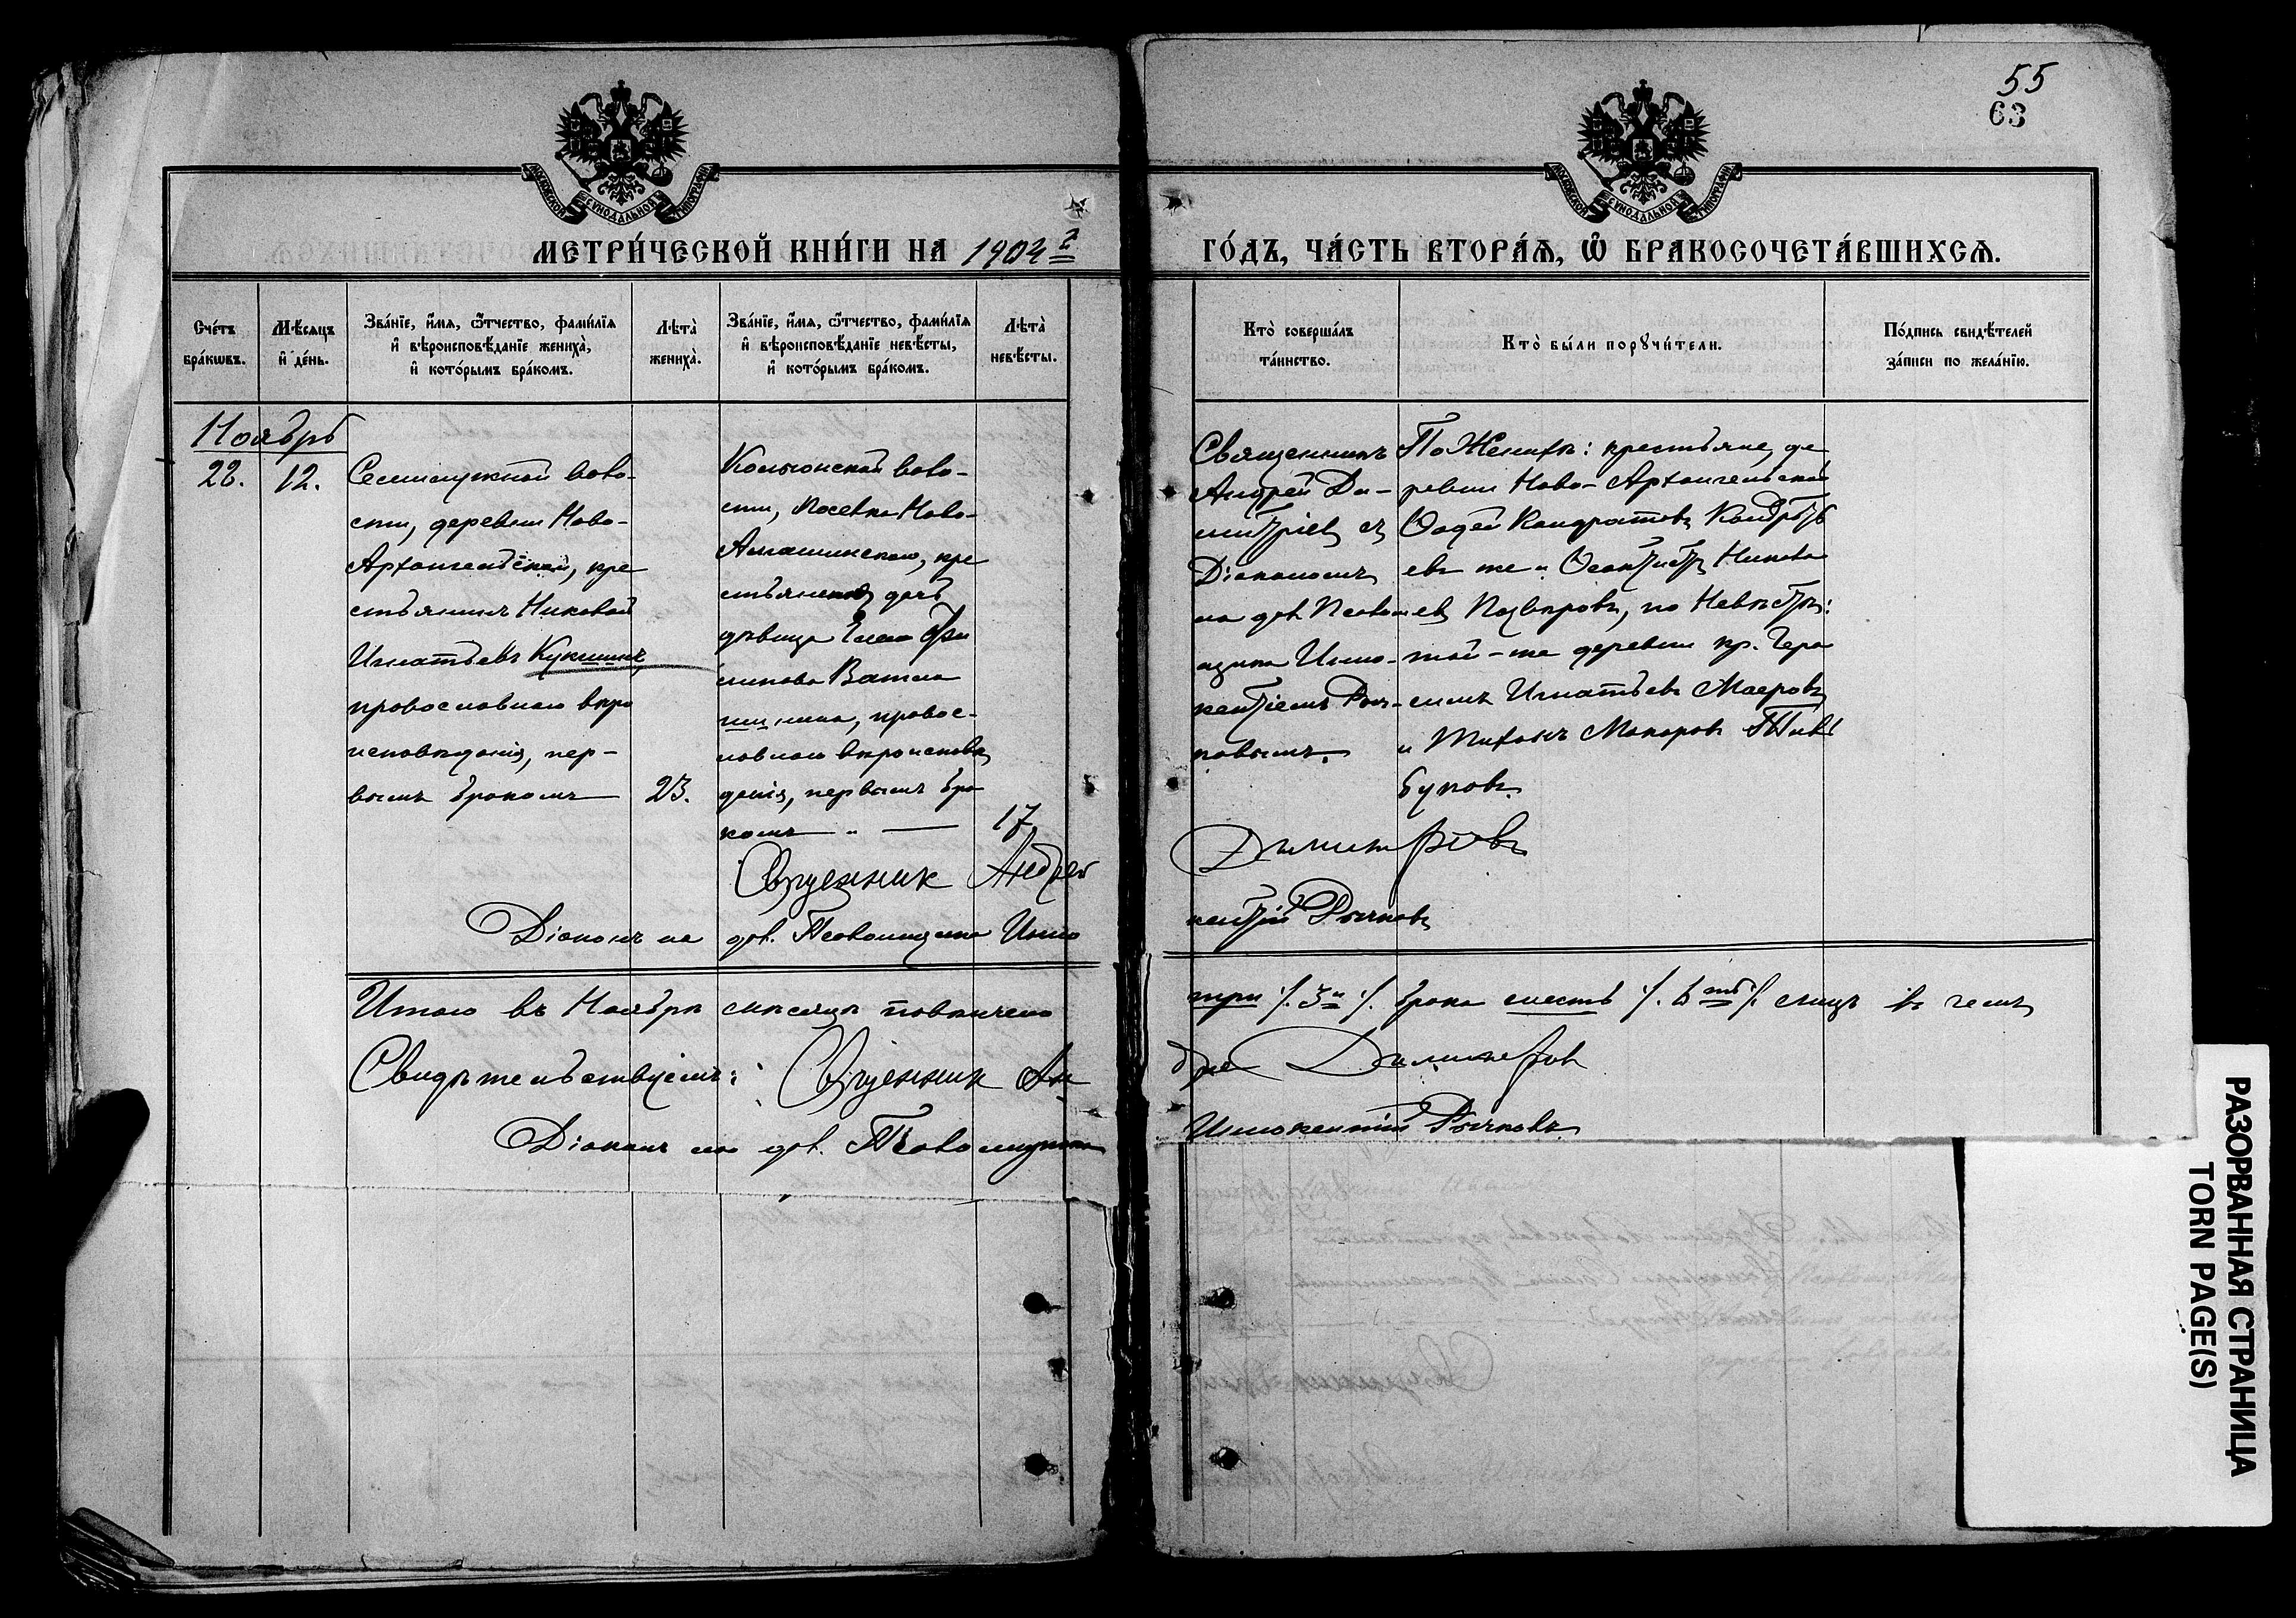 55
63
МОСКОВСКОЙ СѴНОДАЛЬНОЙ ТИПОГРАФІИ
МОСКОВСКОЙ СѴНОДАЛЬНОЙ ТИПОГРАФІИ
МЕТРИ́ЧЕСКОЙ КНИ́ГИ НА 1904 г.
ГО́ДЪ, ЧА́СТЬ ВТОРА́Ѧ, Ѡ҆ БРАКОСОЧЕТА́ВШИХСѦ.
Сче́тъ
бра́кѡвъ.
Мѣ́сѧцъ
и҆ де́нь.
Зва́нїе, и҆́мѧ, ѻ҆́тчество, фами́лїѧ
и҆ вѣроисповѣ́данїе жениха̀,
и҆ кото́рымъ бра́комъ.
Лѣта̀
жениха̀.
Зва́нїе, и҆́мѧ, ѻ҆́тчество, фами́лїѧ
и҆ вѣроисповѣ́данїе невѣ́сты,
и҆ кото́рымъ бра́комъ.
Лѣта̀
невѣ́сты.
Кто̀ соверша́лъ
та́инство.
Кто̀ бы́ли порꙋчи́тели.
По́дпись свидѣ́телей
за́писи по жела́нїю.
Ноябрь
22.
12.
Семилужной воло-
сти, деревни Ново-
Архангельской, кре
стьянинъ Николай
Игнатьевъ Кукшинъ
православнаго вѣро
исповѣданія, пер-
вымъ бракомъ
23.
воло-
сти, поселка Ново-
кре
стьянская дочь
дѣвица Елена Фи
липова
православ-
наго вѣроисповѣ
данія, первымъ бра
комъ
17.
Священникъ
Андрей Ди-
митріев съ
Діакономъ
на дол. Псалом
щика Инно-
кентіемъ Рыч-
ковымъ.
По Женихѣ: крестьяне де
ревни Ново-Архангельской
Фадей Кондратовъ
евъ же и Николa
евъ по Невѣстѣ:
той-же деревни кр. Гера
симъ Игнатьевъ
и Тихонъ Макаровъ
Священник Андрей
Димитріевъ
Діаконъ на дол. Псаломщика Инно
кентій Рычковъ
Итого въ Ноябрѣ мѣсяцѣ повѣнчано
три /. 3 и /. брака шесть /. 6 ть /. лицъ въ чемъ
Свидѣтельствуемъ: Священник Ан
дрей Димитріев
Діаконъ на дол. Псаломщика
Иннокентій Рычковъ
РАЗОРВАННАЯ СТРАНИЦА
TORN PAGE(S)